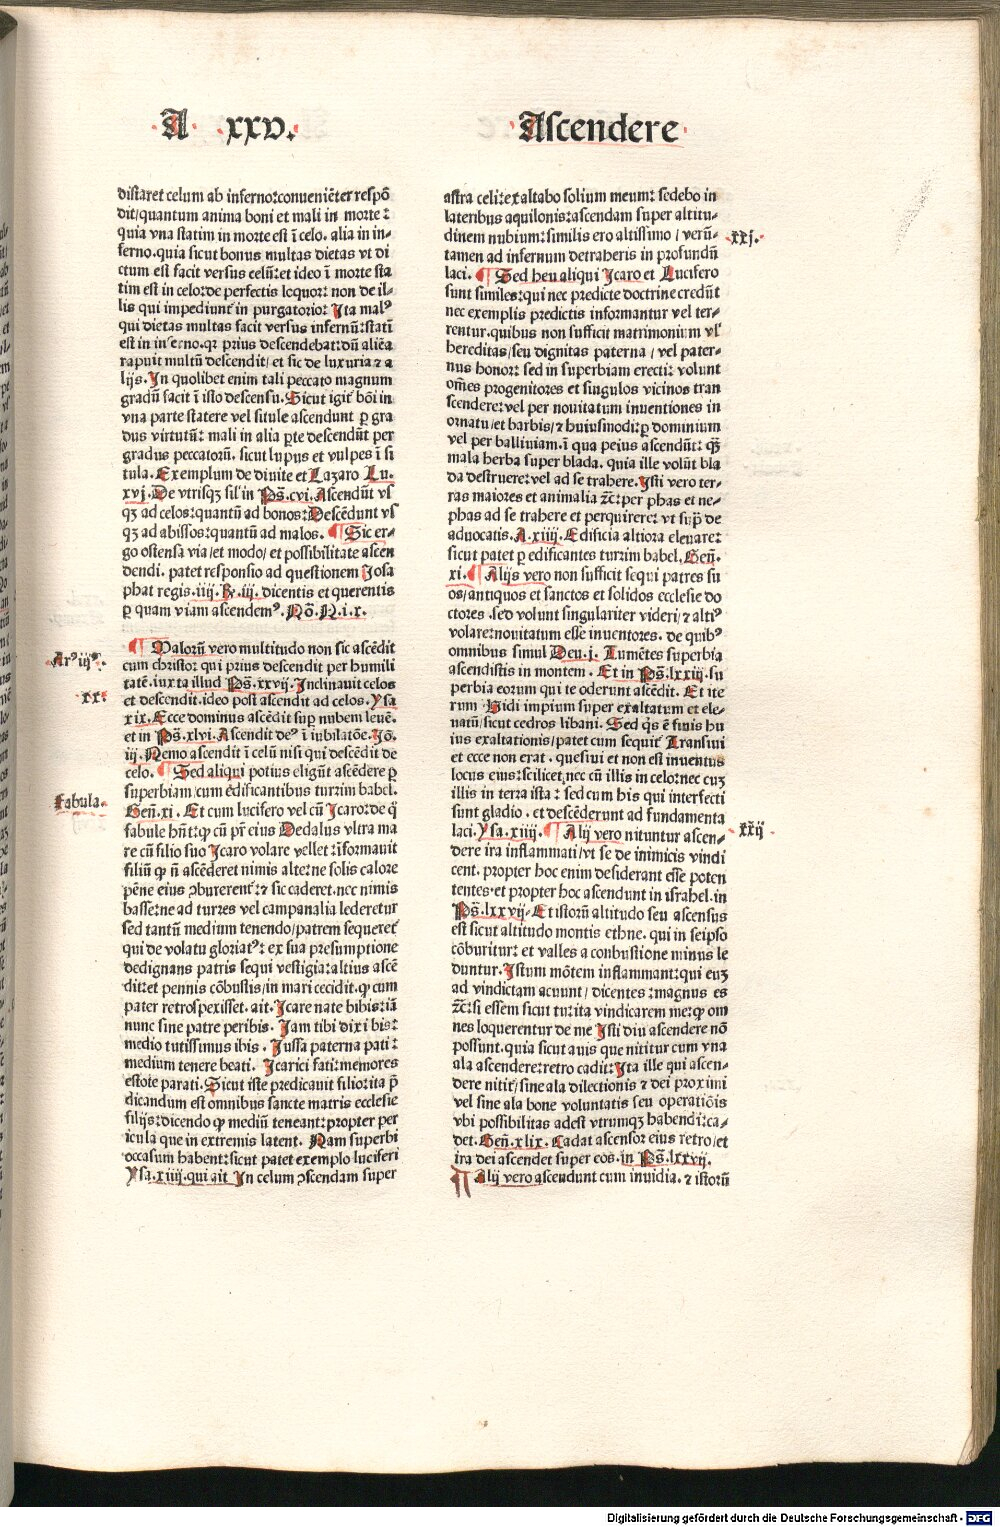 A xxv.
Ascendere
distaret celum ab inferno: conueniēter respō
dit/ quantum anima boni et mali in morte:
quia vna statim in morte est ī celo. alia in in-
ferno. quia sicut bonus multas dietas vt di
ctum est facit versus celū: et ideo ī morte sta
tim est in celo: de perfectis loquor: non de il-
lis qui impediunt̄ in purgatorio: Ita malꝰ
qui dietas multas facit versus infernū: statī
est in inferno. qr prius descendebat: dū aliēa
rapuit multū descendit/ et sic de luxuria ⁊ a
lijs. In quolibet enim tali peccato magnum
gradū facit ī isto descensu. Sicut igit̄ bōi in
vna parte statere vel situle ascendunt ꝑ gra
dus virtutū: mali in alia ꝑte descendūt per
gradus peccatorū. sicut lupus et vulpes ī si
tula. Exemplum de diuite et Lazaro Lu.
xvj. De vtrisqꝫ sil' in Ps̄. cvi. Ascendūt vs
qꝫ ad celos: quantū ad bonos: Descēdunt vs
qꝫ ad abissos: quantū ad malos. ¶ Sic er-
go ostensa via/ et modo/ et possibilitate ascen
dendi. patet responsio ad questionem Iosa
phat regis. iiij. R. iij. dicentis et querentis
ꝑ quam viam ascendemꝰ. Nō. N. i. x.
Arꝰ iijꝰ.
xx.
¶ Malorū vero multitudo non sic ascēdit
cum christo: qui prius descendit per humili
tatē. iuxta illud Ps̄. xxvij. Inclinauit celos
et descendit. ideo post ascendit ad celos. Ysa
xix. Ecce dominus ascēdit suꝑ nubem leuē.
et in Ps̄. xlvi. Ascendit deꝰ ī iubilatōe. Jō.
iij. Nemo ascendit ī celū nisi qui descēdit de
celo. ¶ Sed aliqui potius eligūt ascēdere ꝑ
superbiam/ cum edificantibus turrim babel.
Fabula.
Gen̄. xi. Et cum lucifero vel cū Icaro: de q̄
fabule hn̄t: ꝙ cū pr̄ eius Dedalus vltra ma
re cū filio suo Icaro volare vellet: īformauit
filiū ꝙ n̄ ascēderet nimis alte: ne solis calore
pēne eius ꝯburerent̄: ⁊ sic caderet. nec nimis
basse: ne ad turres vel campanalia lederetur
sed tantū medium tenendo/ patrem sequeret̄
qui de volatu gloriatꝰ: ex sua presumptione
dedignans patris sequi vestigia: altius ascē
dit: et pennis cōbustis/ in mari cecidit. ꝙ cum
pater retrospexisset. ait. Icare nate bibis: iā
nunc sine patre peribis. Jam tibi dixi bis:
medio tutissimus ibis. Jussa paterna pati:
medium tenere beati. Icarici fati: memores
estote parati. Sicut iste predicauit filio: ita p̄
dicandum est omnibus sancte matris ecclesie
filijs: dicendo ꝙ mediū teneant: propter per
icula que in extremis latent. Nam superbi
occasum habent: sicut patet exemplo luciferi
Ysa. xiiij. qui ait In celum ꝯscendam super
astra celi: exaltabo solium meum: sedebo in
lateribus aquilonis: ascendam super altitu-
dinem nubium: similis ero altissimo / verū-
xxj.
tamen ad infernum detraheris in profundū
laci. ¶ Sed heu aliqui Icaro et Lucifero
sunt similes: qui nec predicte doctrine credūt
nec exemplis predictis informantur vel ter-
rentur. quibus non sufficit matrimonium vl'
hereditas/ seu dignitas paterna / vel pater-
nus honor: sed in superbiam erecti: volunt
om̄es progenitores et singulos vicinos tran
scendere: vel per nouitatum inuentiones in
ornatu/ et barbis/ ⁊ huiusmodi: ꝑ dominium
vel per balliuiam. ī qua peius ascendūt: qꝫ
mala herba super blada. quia ille volūt bla
da destruere: vel ad se trahere. Isti vero ter-
ras maiores et animalia ⁊c̄: per phas et ne-
phas ad se trahere et perquirere: vt supͣ de
aduocatis. A. xiiij. Edificia altiora eleuare:
sicut patet ꝑ edificantes turrim babel. Gen̄.
xi. ¶ Alijs vero non sufficit sequi patres su
os/ antiquos et sanctos et solidos ecclesie do
ctores. sed volunt singulariter videri/ ⁊ altiꝰ
volare: nouitatum esse inuentores. de quibꝰ
omnibus simul Deu. j. Tumētes superbia
ascendistis in montem. Et in Ps̄. lxxiij. su
perbia eorum qui te oderunt ascēdit. Et ite
rum Vidi impium super exaltatum et ele-
uatū/ sicut cedros libani. Sed qͥs ē finis hu
ius exaltationis/ patet cum sequit̄ Transiui
et ecce non erat. quesiui et non est inuentus
locus eius: scilicet/ nec cū illis in celo: nec cuꝫ
illis in terra ista: sed cum his qui interfecti
sunt gladio. et descēderunt ad fundamenta
xxij
laci. Ysa. xiiij. ¶ Alij vero nituntur ascen-
dere ira inflammati/ vt se de inimicis vindi
cent. propter hoc enim desiderant esse poten
tentes. et propter hoc ascendunt in israhel. in
Ps̄. lxxvij. Et istorū altitudo seu ascensus
est sicut altitudo montis ethne. qui in seipso
cōburitur: et valles a conbustione minus le
duntur. Istum mōtem inflammant: qui euꝫ
ad vindictam acuunt/ dicentes: magnus es
⁊c̄: si essem sicut tu: ita vindicarem me: ꝙ om
nes loquerentur de me Isti diu ascendere nō
possunt. quia sicut auis que nititur cum vna
ala ascendere: retro cadit: Ita ille qui ascen-
dere nitit̄/ sine ala dilectionis ⁊ dei proximi
vel sine ala bone voluntatis seu operatiōis
vbi possibilitas adest vtrumqꝫ habendi: ca-
det. Gen̄. xlix. Cadat ascensor eius retro/ et
ira dei ascendet super eos. in Ps̄. lxxvij.
¶ Alij vero ascendunt cum inuidia. ⁊ istorū
Digitalisierung gefördert durch die Deutsche Forschungsgemeinschaft - DFG